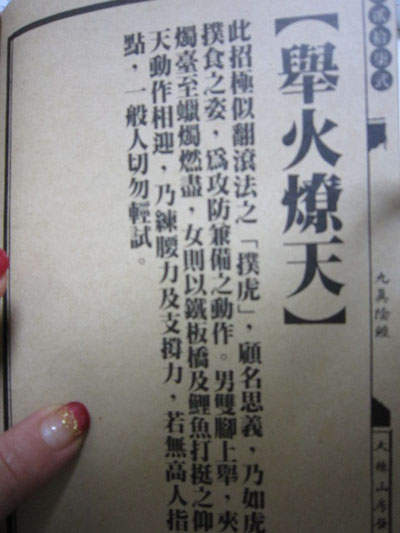 【舉火燎天】
此招極似翻滾法之「撲虎」，顧名思義，乃如虎
撲食之姿，為攻防兼備之動作。男雙腳上舉，夾
燭臺至蠟燭燃盡，女則以鐵板橋及鯉魚打挺之仰
天動作相迎，乃練腰力及支撐力，若無高人指
點，一般人切勿輕試。
貳拾柒式
九真陰經